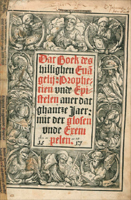 Dat Boek des
hillighen Euā
gelij: Prophe-
tien vnde Epi-
stelen auer dat
ghantze Jaer:
mit der glosen
vnde Exem
pelen: